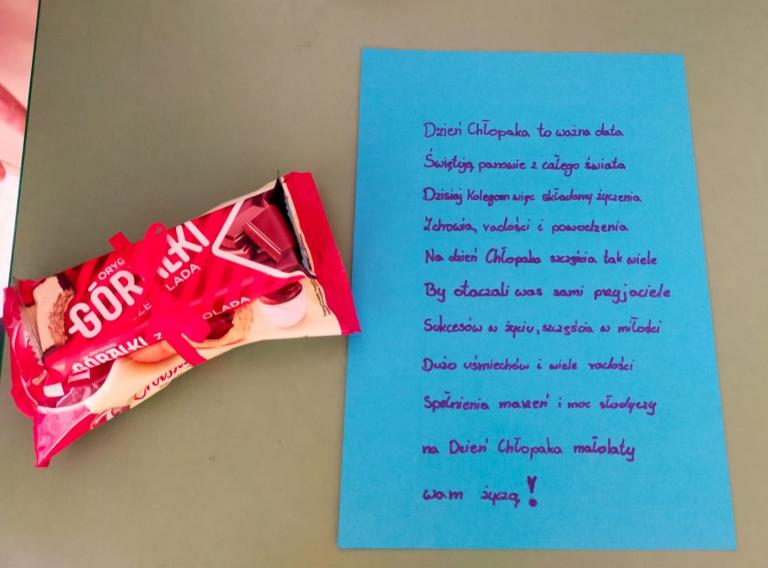 ORYG
GÓRALKI
LADA
GÓRALKI Z
OLADA
Dzień Chłopaka to ważna data
Świętują panowie z całego świata
Dzisiaj kolegom więc składamy życzenia
Zdrowia, radości i powodzenia
Na dzień Chłopaka szczęścia tak wiele
By otaczali was sami przyjaciele
Sukcesów w życiu, szczęścia w miłości
Dużo uśmiechów i wiele radości
Spełnienia marzeń i moc słodyczy
na Dzień Chłopaka małolaty
wam życzą!